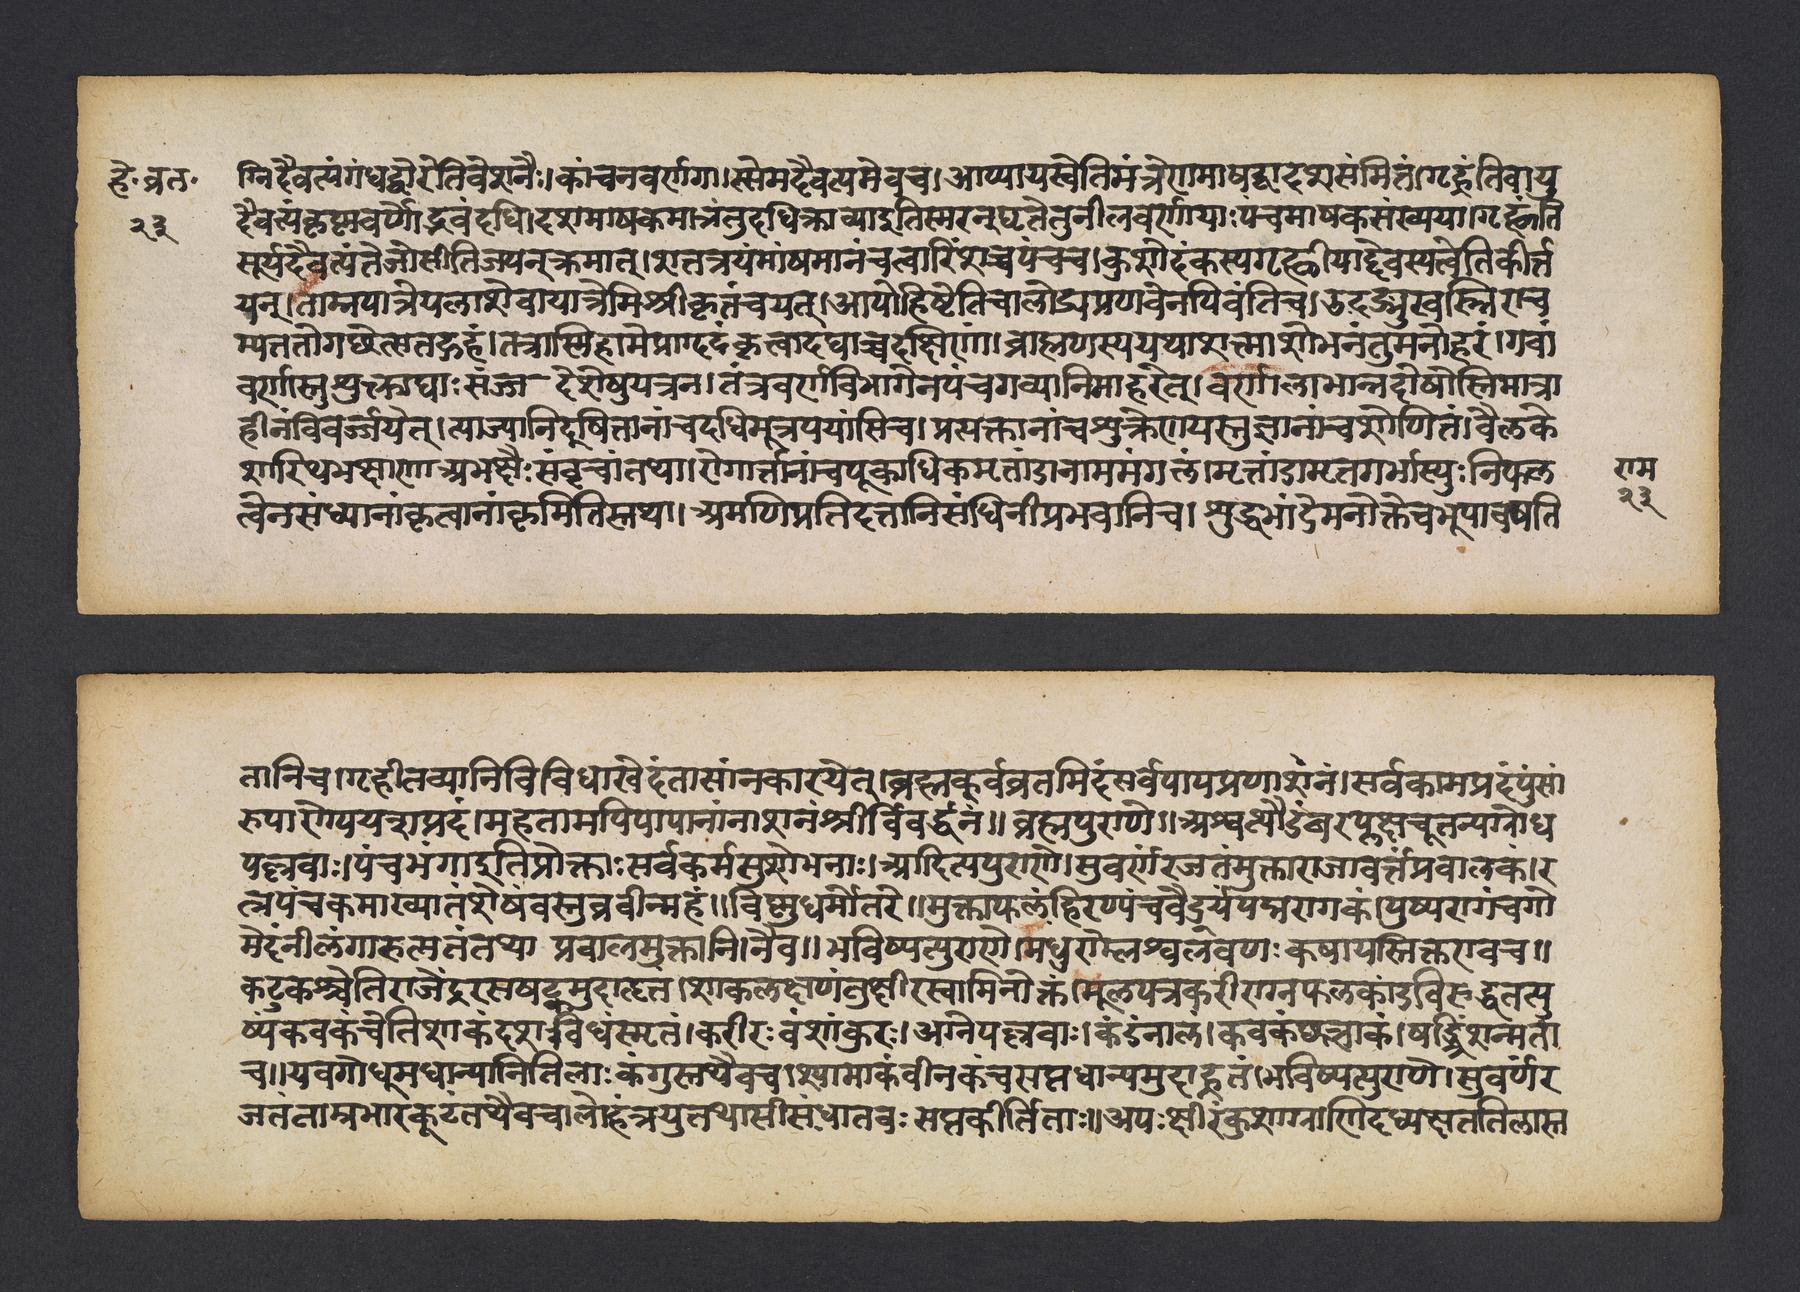 हे. व्रत.
२३
ग्निदैवत्यंगंधद्वारेतिवैशनैः।कांचनवर्णागा।सोमदैवत्यमेवच।आप्यायस्वेतिमंत्रेणमाषद्वादशसंमितं।गृह्णंतिवायु
दैवत्यंकृष्णवर्णोद्भवंदधि।दशमाषकमात्रंतुदधिक्राव्यादुतिस्मरन्घृतंतुनीलवर्णायाःपंचमाषकसंख्यया।गृह्णंति
सूर्यदैवत्यंतेजोसीतिजपन्क्रमात्।शतत्रयंमांषमानंचत्वारिंशच्चपंचच।कुशोदंकस्यगृह्णीयाद्देवस्यत्वेतिकीर्त्त
यन्।ताम्रपात्रेपलाशेवापात्रेमिश्रीकृतंचयत्।आपोहिष्ठेतिचालोड्यप्रणवेनपिवंतिच।उदङ्मुखस्त्रिराच
म्यततोगछेत्सतद्गृहं।तत्रास्मिहोमेप्राग्दंकृत्वादघाच्चदक्षिणां।ब्राह्मणस्ययथाशत्त्माशोभनंतुमनोहरं।गवां
वर्णास्तुशुक्लाघाःसंज्ञा देशेषुयत्रन।तंत्रवर्णविभागेनपंचगव्यानिमाहरेत्।वर्णालाभान्नदोषोस्तिमात्रा
हीनंविवर्ज्जयेत्।त्याज्यानिदूषितानांचदधिमूत्रपयांसिच।प्रत्यक्तानांचशुक्रेणयस्तुज्ञानांचशोणितं।वैलके
शास्थिभक्षाणाअभक्षैःसंवृत्तांतथा।रोगार्त्तानांचपूकाधिकमृतांडानाममंगलं।मृतांडामृतगर्भास्युःनिष्फल
त्वेनसंध्यानांकृत्वानांकृमितिस्तथा।अमणिप्रतिदत्तानिसंधिनीप्रभवानिच।शुद्धभांदेमनोक्तैचभूपावषति
राम
२३
तानिच।गृहीतव्यानिविविधाखेदंतासांनकारयेत्।ब्रह्मकुर्वव्रतमिदंसर्वपापप्रणाशनं।सर्वकामप्रदंपुंसां
रुपारोग्ययशप्रदं।महतामपिपापानांनाशनंश्रीविवर्द्धनं॥ब्रह्मपुराणे॥अश्वत्थौदुंबरप्लक्षचूतन्यग्रोध
पल्लवाः।पंचभंगादुतिप्रोक्ताःसर्वकर्मसुशोभनाः।आदित्यपुराणे।सुवर्णंरजतंमुक्ताराजावर्त्तंप्रवालकं।र
त्नपंचकमाख्यातंशेषंवस्तुब्रवीन्महं॥विष्णुधर्मोतरे॥मुक्ताफलंहिरण्यंचवैदुर्यंपद्मरागकं।पुष्परागंचगो
मेदंनीलंगारुत्मतंतथा प्रवालमुक्तानि।नैव॥भविष्यत्पुराणे।मधुरोम्लश्वलवणःकषायस्तिक्तरावच॥
कटुकश्चेतिराजेंद्ररसषट्कमुदाहृतं।शाकलक्षणंतुक्षीरस्वामिनोक्तं।मूलपत्रकरीराग्रफलकांडविरूढतत्पु
ष्पंकवकंचेतिशाकंदशविधंस्मृतं।करीरःवंशांकुरः।अग्रेपल्लवाः।कंडंनालं।कवकंछत्राकं।षट्त्रिंशन्मतां
च॥यवगोधूमधान्यानितिलाःकंगुस्तथैवच।श्यामाकंवीनकंचसप्तधान्यमुदाहृतं।भविष्यत्पुराणे।सुवर्णंर
जतंताम्रभारकूटंतथैवचालोहंत्रयुतथासीसंधातवःसप्तकीर्तिताः॥अपःक्षीरंकुशाग्राणिदध्यक्षततिलास्त